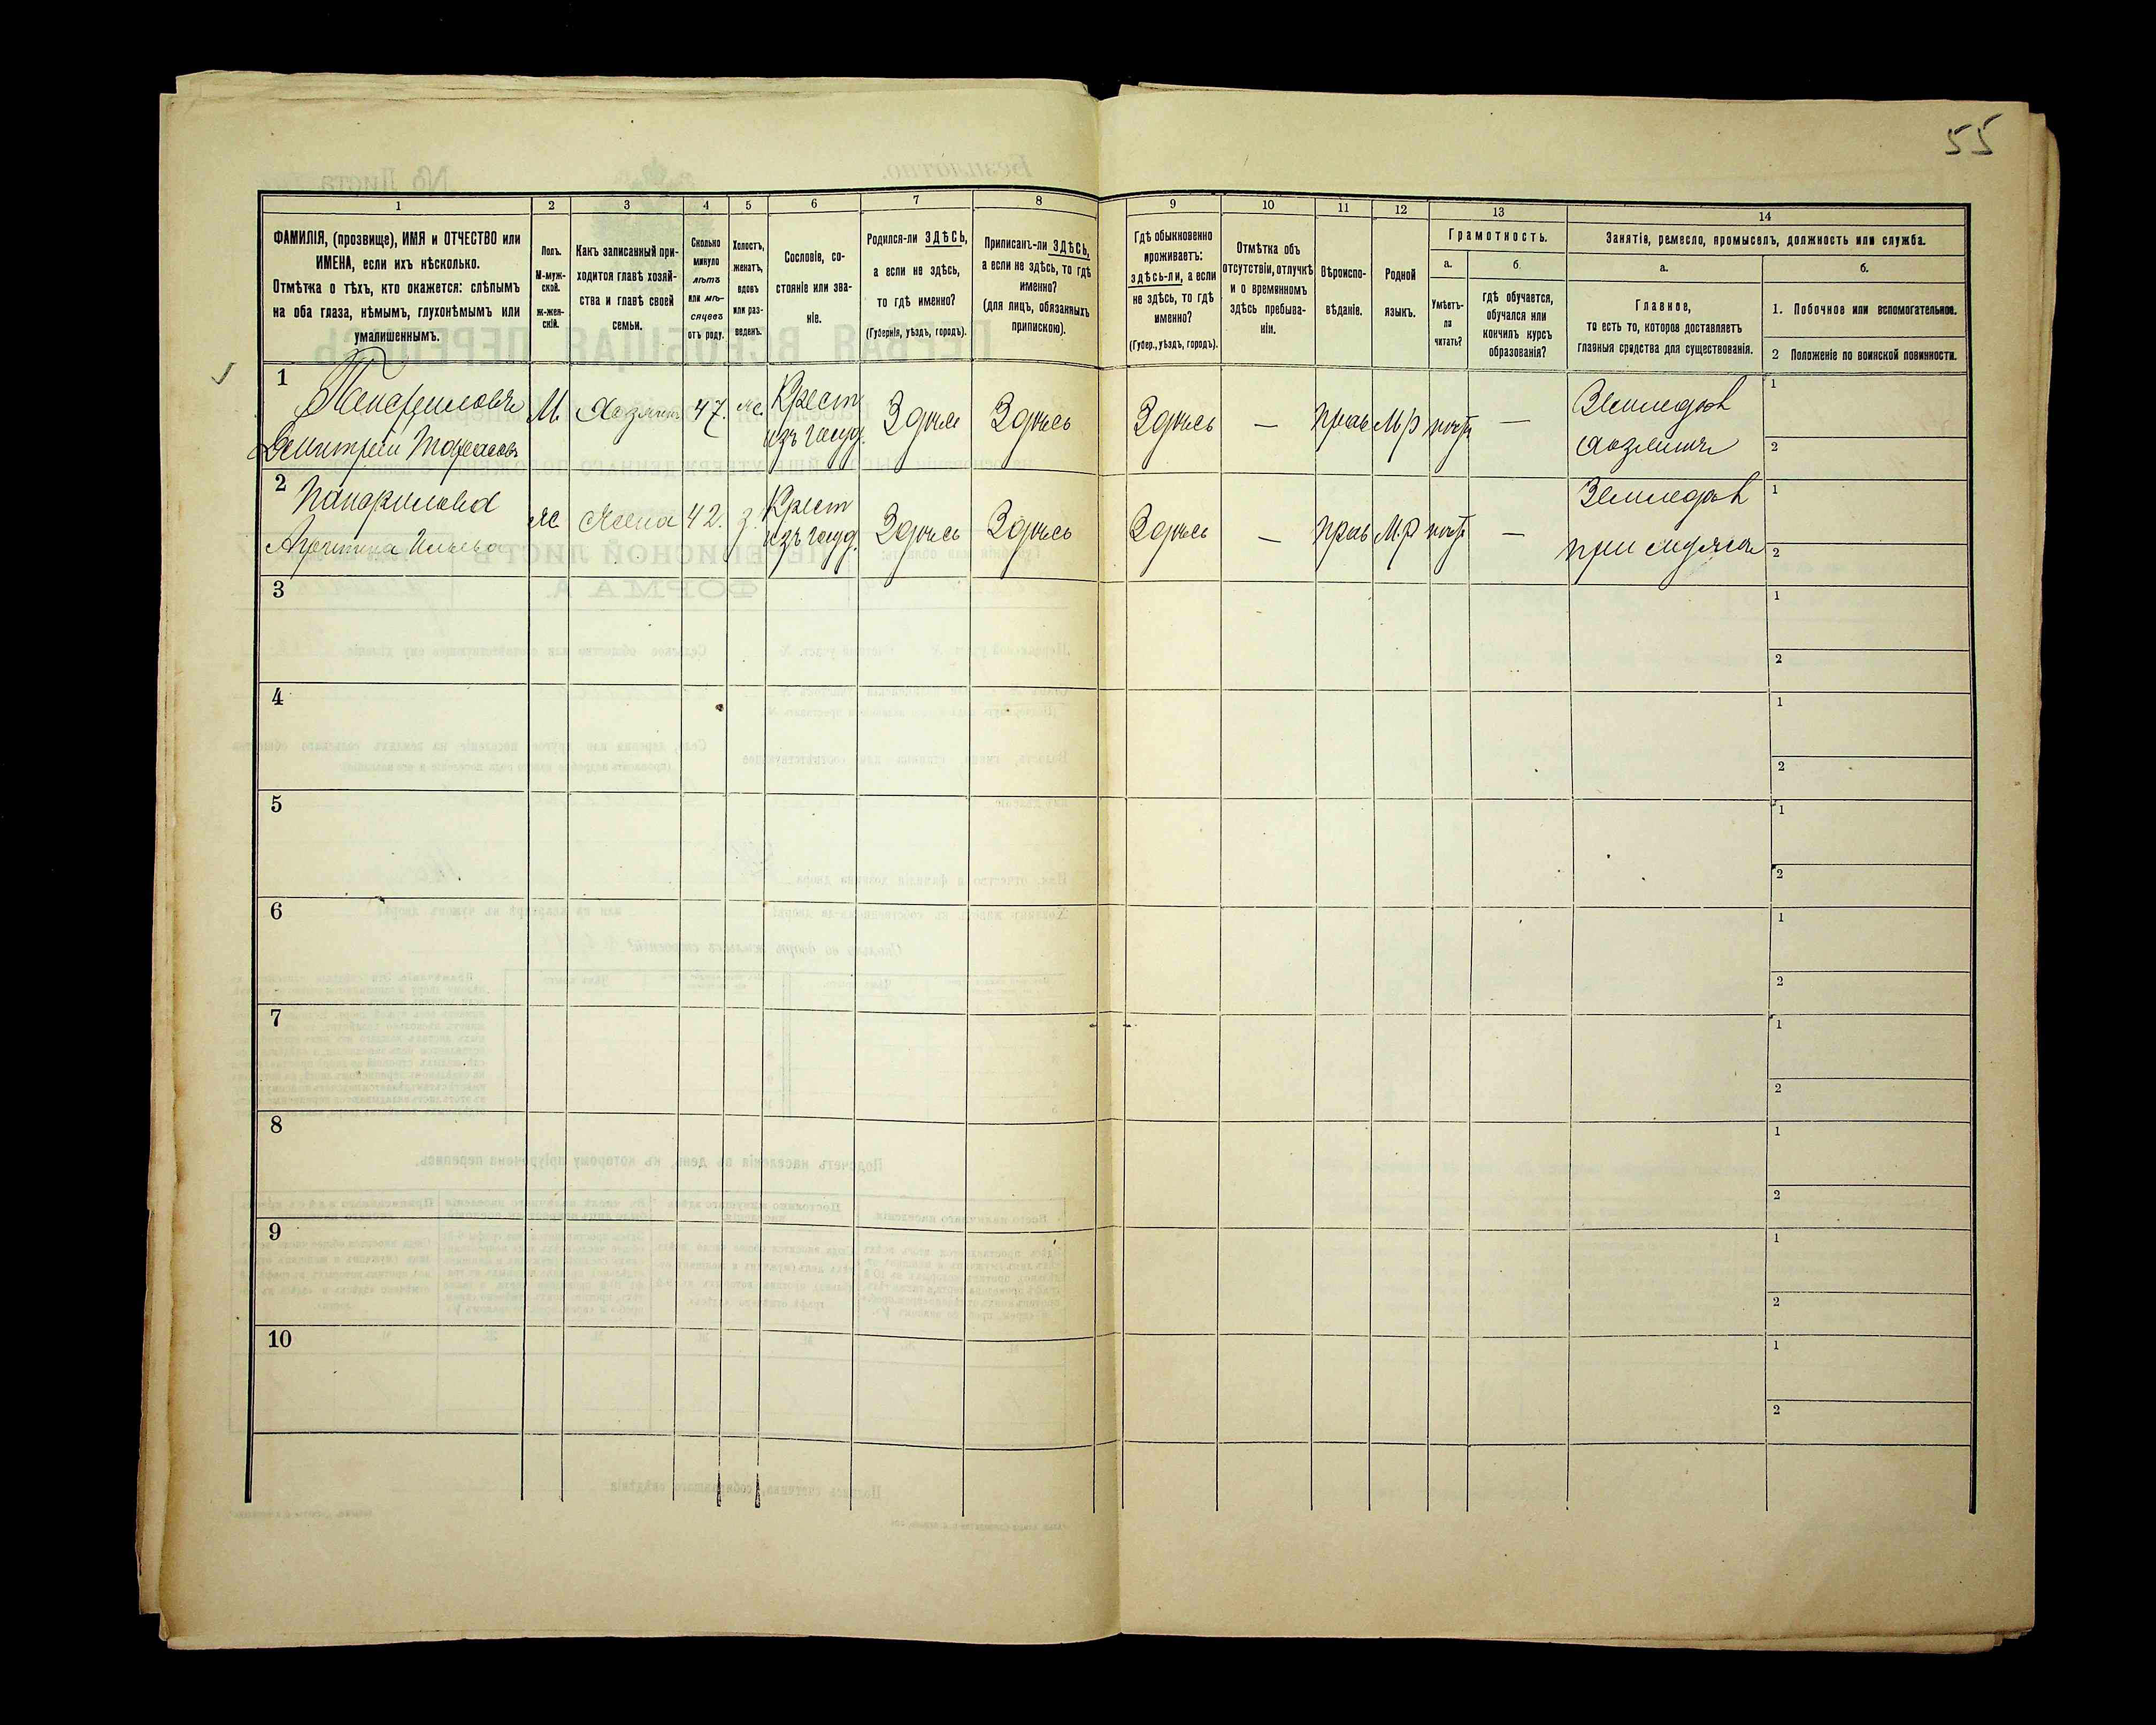 55
1
2
3
4
5
6
7
8
9
10
11
12
13
14
ФАМИЛІЯ, (прозвище), ИМЯ и ОТЧЕСТВО или
ИМЕНА, если ихъ нѣсколько.
Отмѣтка о тѣхъ, кто окажется: слѣпымъ
на оба глаза, нѣмымъ, глухонѣмымъ или
умалишеннымъ.
Полъ.
М-муж-
ской.
ж-жен-
скій.
Какъ записанный при-
ходится главѣ хозяй-
ства и главѣ своей
семьи.
Сколько
минуло
лѣтъ
или мѣ-
сяцевъ
отъ роду.
Холостъ,
женатъ,
вдовъ
или раз-
веденъ.
Сословіе, со-
стояніе или зва-
ніе.
Родился-ли ЗДѢСЬ,
а если не здѣсь,
то гдѣ именно?
(Губернія, уѣздъ, городъ).
Приписанъ-ли ЗДѢСЬ,
а если не здѣсь, то гдѣ
именно?
(для лицъ, обязанныхъ
припискою).
Гдѣ обыкновенно
проживаетъ:
здѣсь-ли, а если
не здѣсь, то гдѣ
именно?
(Губер., уѣздъ, городъ).
Отмѣтка объ
отсутствіи, отлучкѣ
и о временномъ
здѣсь пребыва-
ніи.
Вѣроиспо-
вѣданіе.
Родной
языкъ.
Грамотность.
а.
Умѣетъ-
ли
читать?
б.
гдѣ обучается,
обучался или
кончилъ курсъ
образованія?
Занятія, ремесло, промыселъ, должность или служба.
а.
Главное,
то есть то, которое доставляетъ
главныя средства для существованія.
б.
1. Побочное или вспомогательное.
2 Положеніе по воинской повинности.
1
Панфиловъ
Дмитрій Тарасовъ
М. Хозяинъ 47. ж.
Крест
изъ госуд.
Здѣсь Здѣсь Здѣсь — прав М.р нѣтъ —
Земледѣл
хозяинъ
1
2
2
Панфилова
ж. Жена 42. з.
Крест
изъ госуд.
Здѣсь Здѣсь Здѣсь — прав М.р нѣтъ —
Земледѣл
при мужѣ
1
2
3
1
2
4
1
2
5
1
2
6
1
2
7
1
2
8
1
2
9
1
2
10
1
2